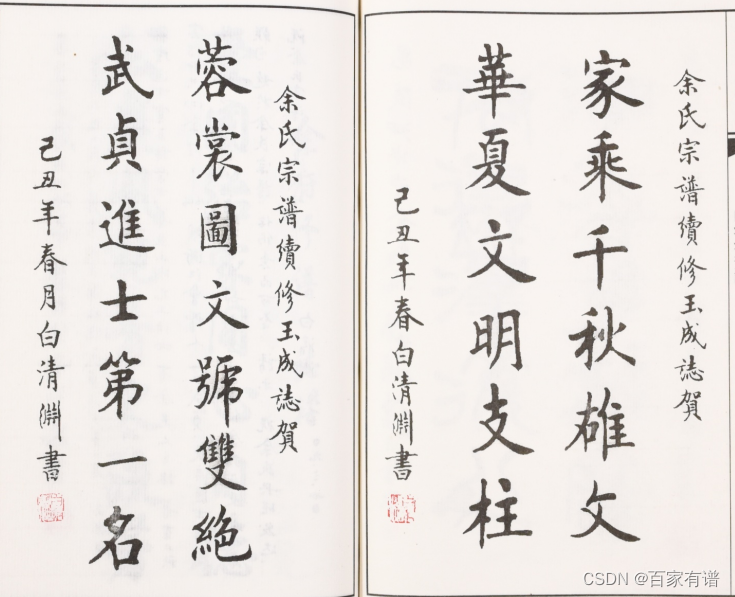 余氏宗譜續修玉成誌賀
家乘千秋雄文
華夏文明支柱
己丑年春白清淵書
余氏宗譜續修玉成誌賀
蓉裳圖文號雙絕
武貞進士第一名
己丑年春月白清淵書
CSDN @百家有谱